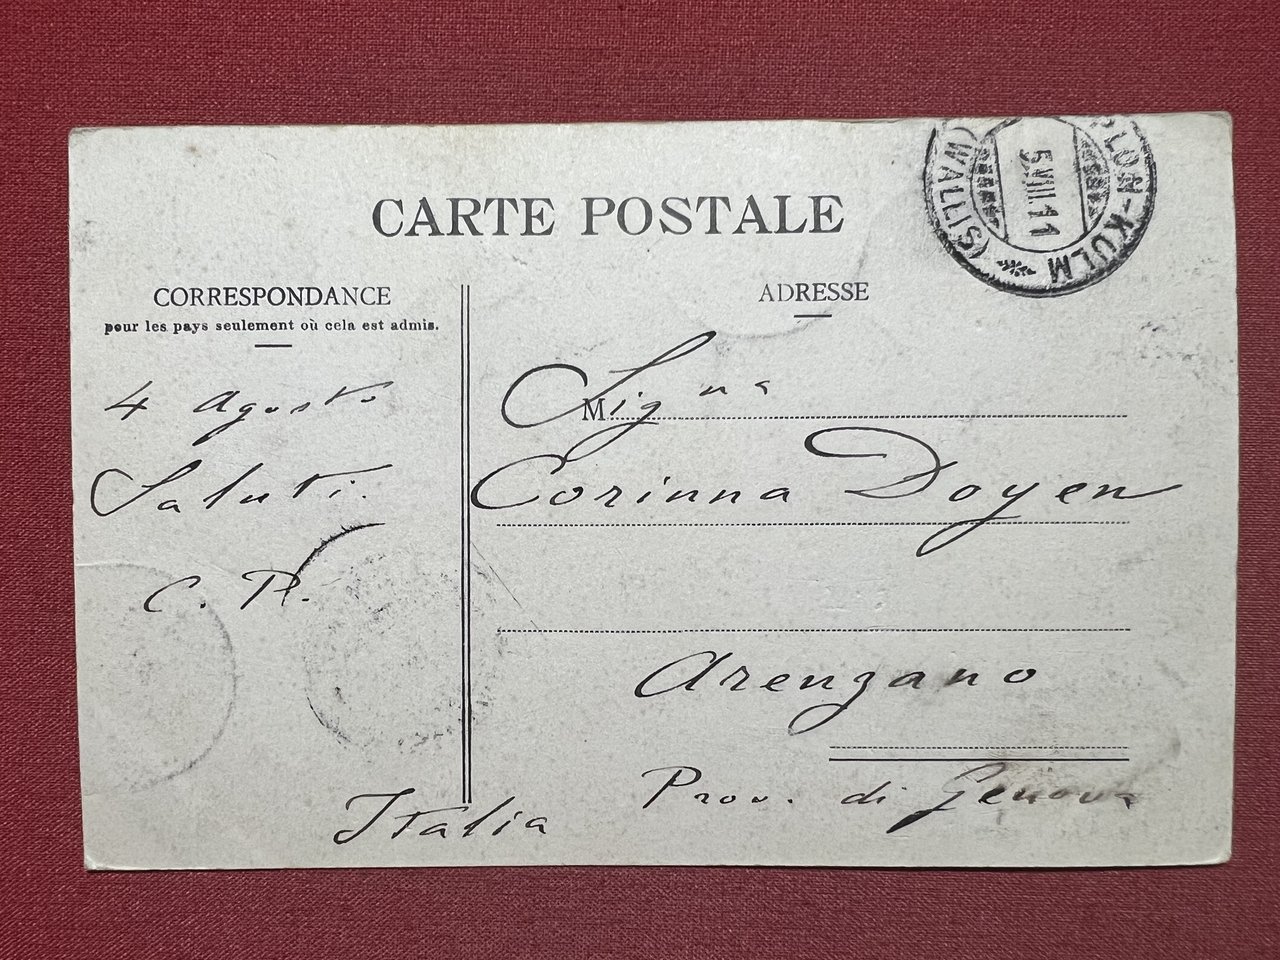 CARTE POSTALE
CORRESPONDANCE
pour les pays seulement où cela est admis.
ADRESSE
PLON-KULM (WALLIS)
5.VIII.11
4 Agosto
Saluti.
C. R.
M
Signa
Corinna Doyen
Arenzano
Prov. di Genova
Italia